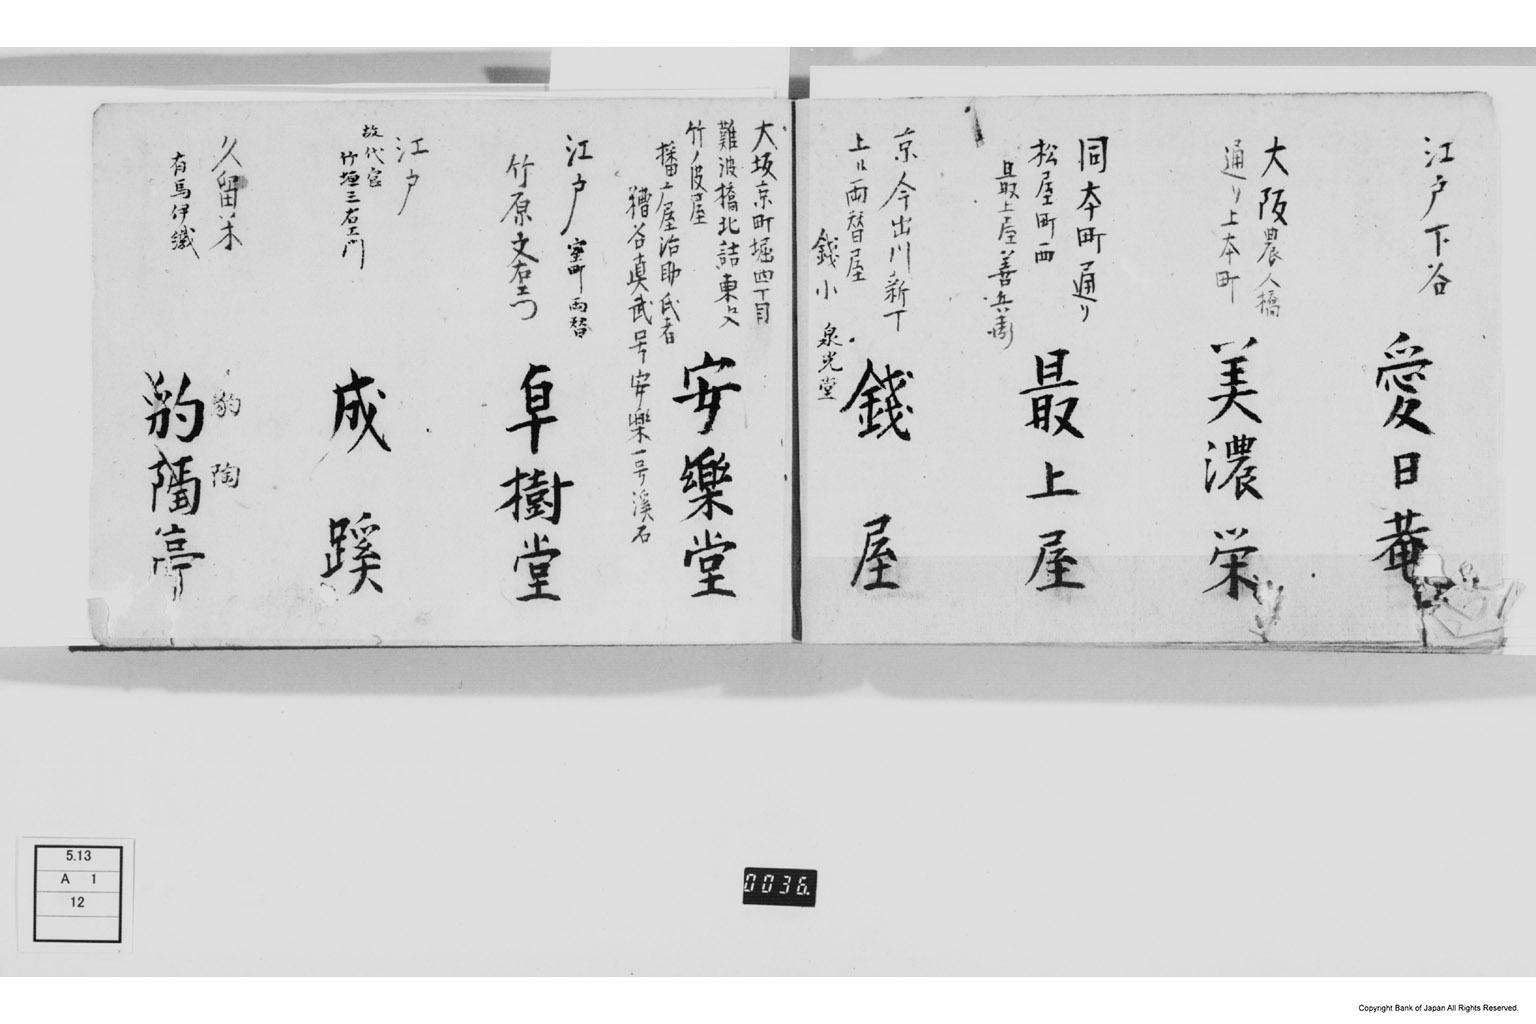 江戸下谷
愛日菴
大阪農人橋
通り上本町
美濃栄
同本町通り
松屋町西
最上屋善兵衛
最上屋
京今出川新丁
上ル両替屋
銭小 泉光堂
銭屋
大坂京町堀四丁目
難波橋北詰東へ入
竹ノ皮屋
播广屋治助氏者
糟谷真武号安樂一号溪石
安樂堂
江戸 室町両替
竹原文右エ門
阜樹堂
江戸
故代官
竹垣三右エ門
成蹊
久留米
有馬伊織
豹陶
豹隠亭
5.13
A 1
12
0036.
Copyright Bank of Japan All Rights Reserved.